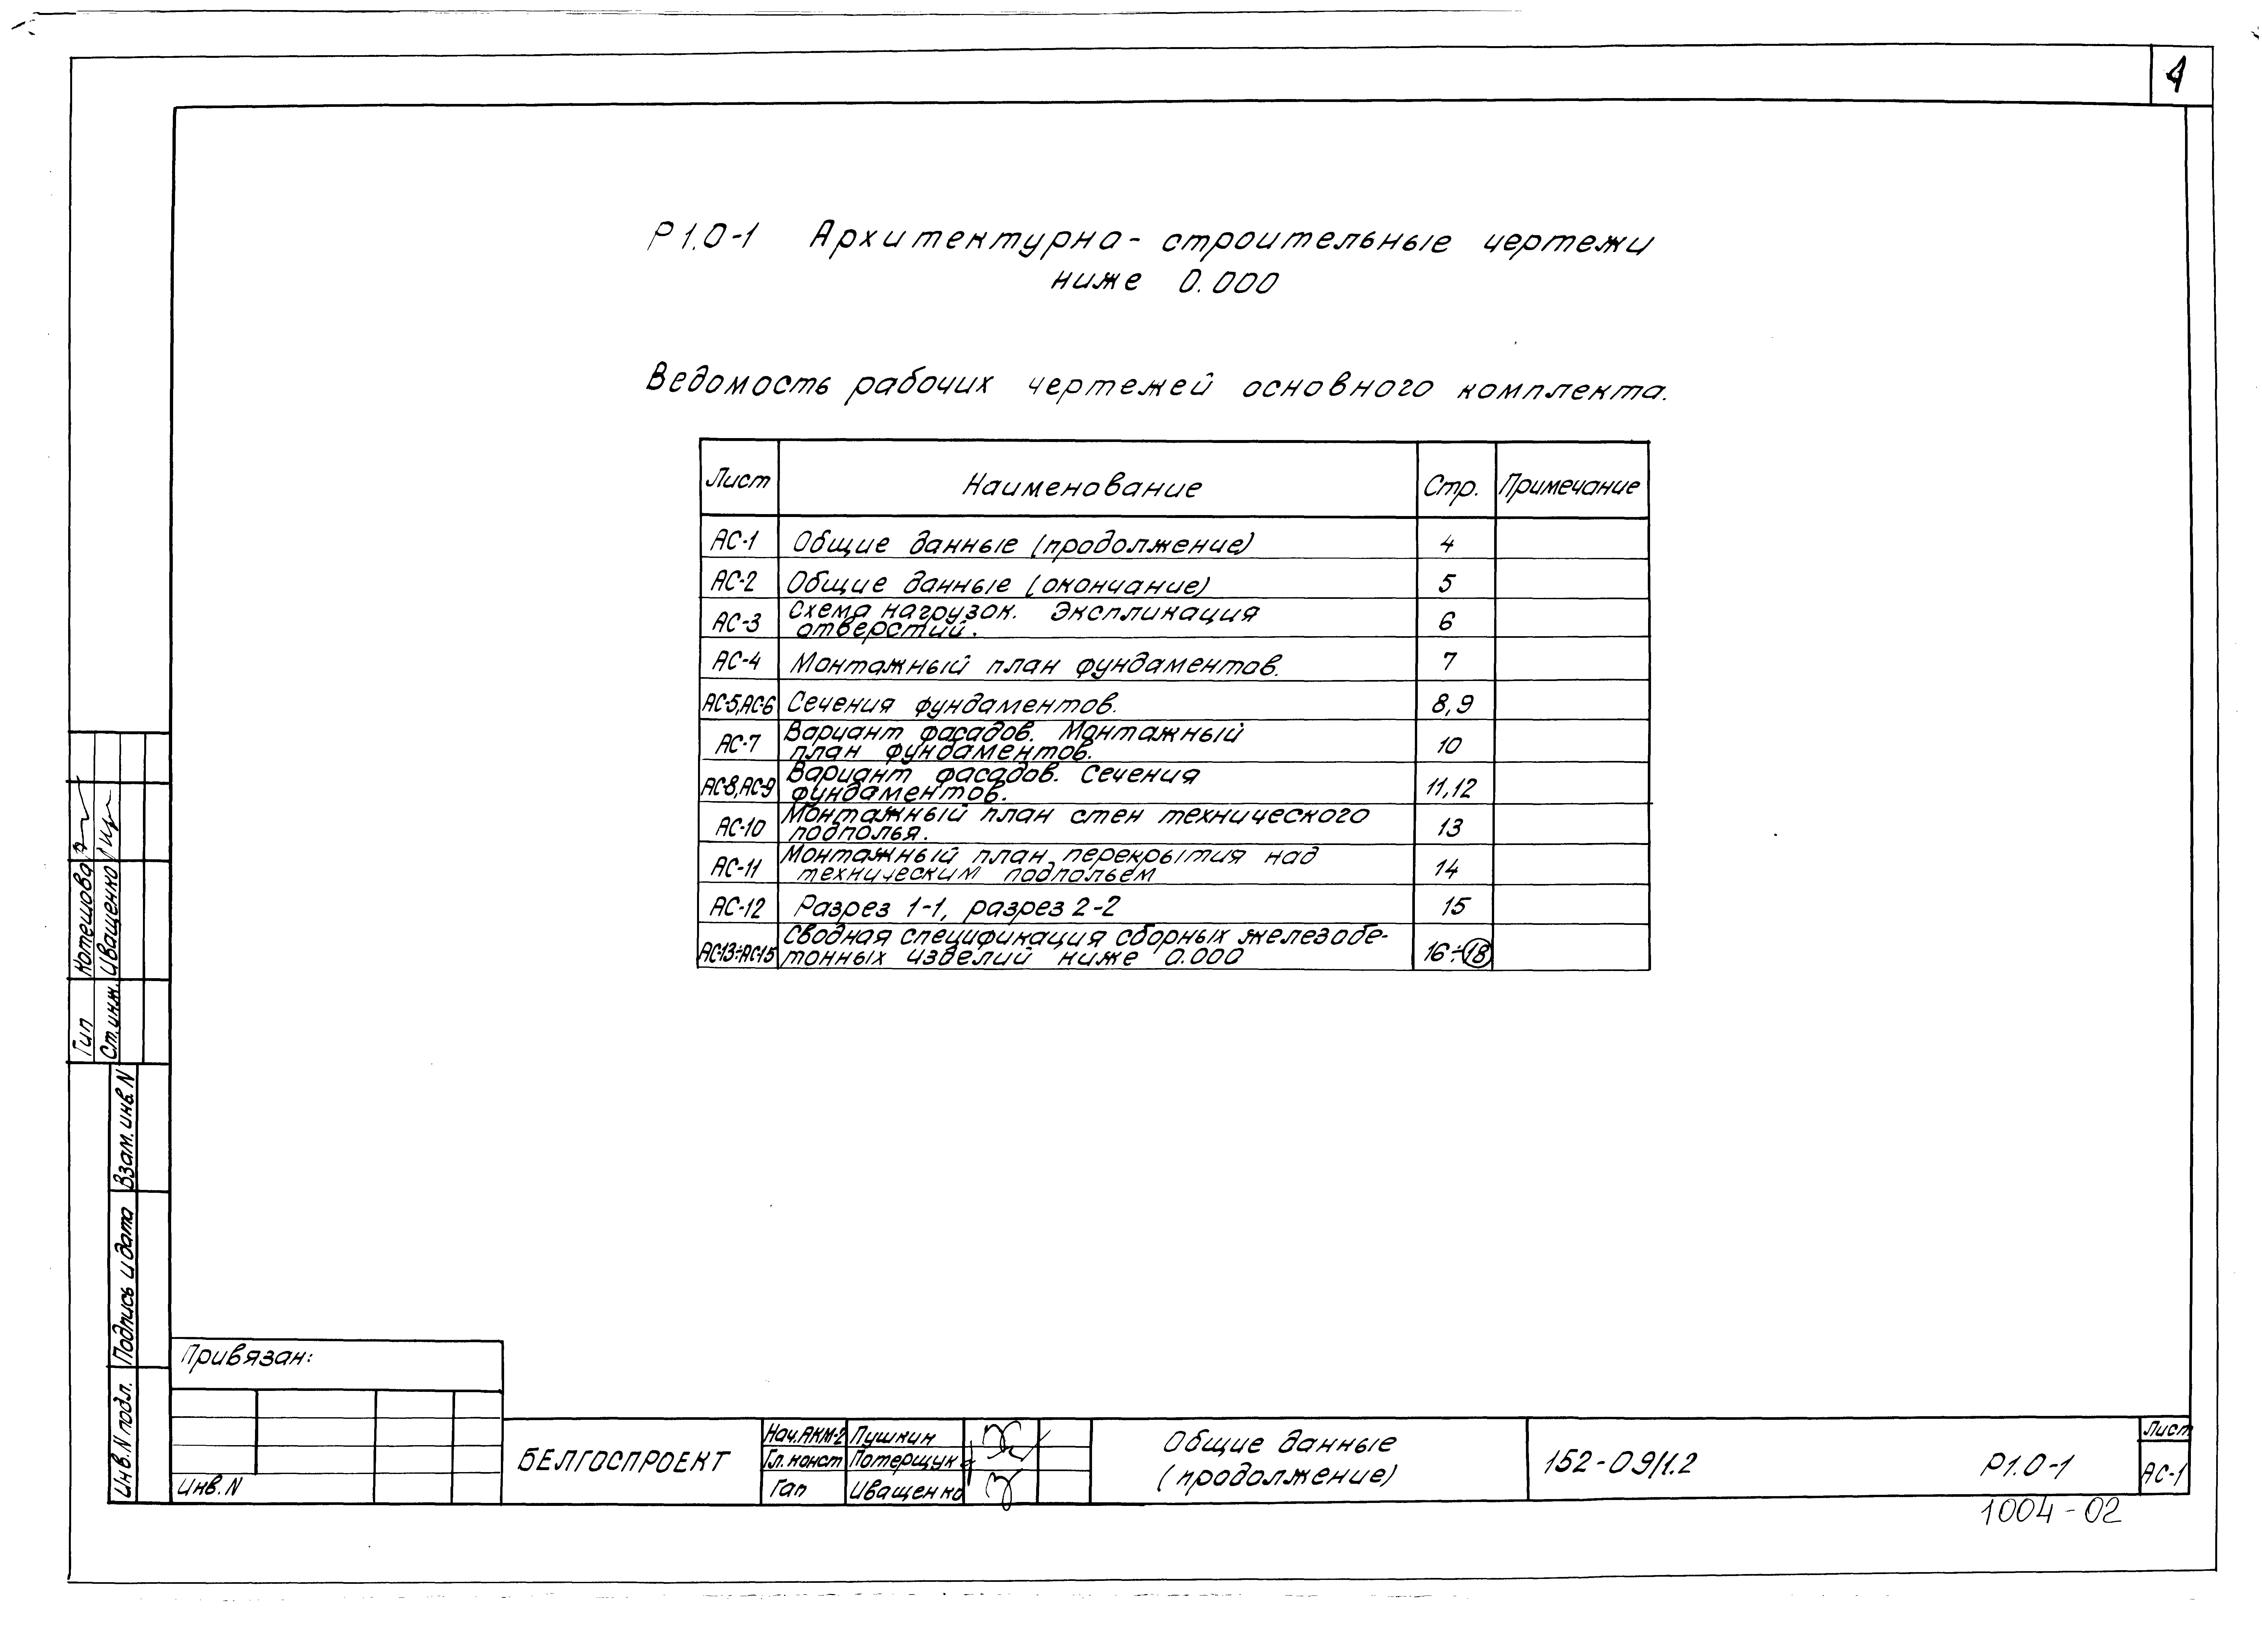 4
Р1.0-1 Архитектурна-строительные чертежи
ниже 0.000
Ведомость рабочих чертежей основного комплекта.
Лист Наименование Стр. Примечание
АС-1 Общие данные (продолжение) 4
АС-2 Общие данные (окончание) 5
АС-3 Схема нагрузок. Экспликация
отверстий. 6
АС-4 Монтажный план фундаментов. 7
АС-5,АС-6 Сечения фундаментов. 8,9
АС-7 Вариант фасадов. Монтажный
план фундаментов. 10
АС-8,АС-9 Вариант фасадов. Сечения
фундаментов. 11,12
АС-10 Монтажный план стен технического
подполья. 13
АС-11 Монтажный план перекрытия над
техническим подпольем 14
АС-12 Разрез 1-1, разрез 2-2 15
АС-13÷АС-15 Сводная спецификация сборных железобе-
тонных изделий ниже 0.000 16÷18
Гип Котешова
Ст.инж. Иващенко
Взам.инв.N
Подпись и дата
Инв.N подл.
Привязан:
Инв.N
БЕЛГОСПРОЕКТ
Нач.АКМ-2 Пушкин
Гл.конст Потерщук
Гап Иващенко
Общие данные
(продолжение)
152-09/1.2 Р1.0-1
Лист
АС-1
1004-02